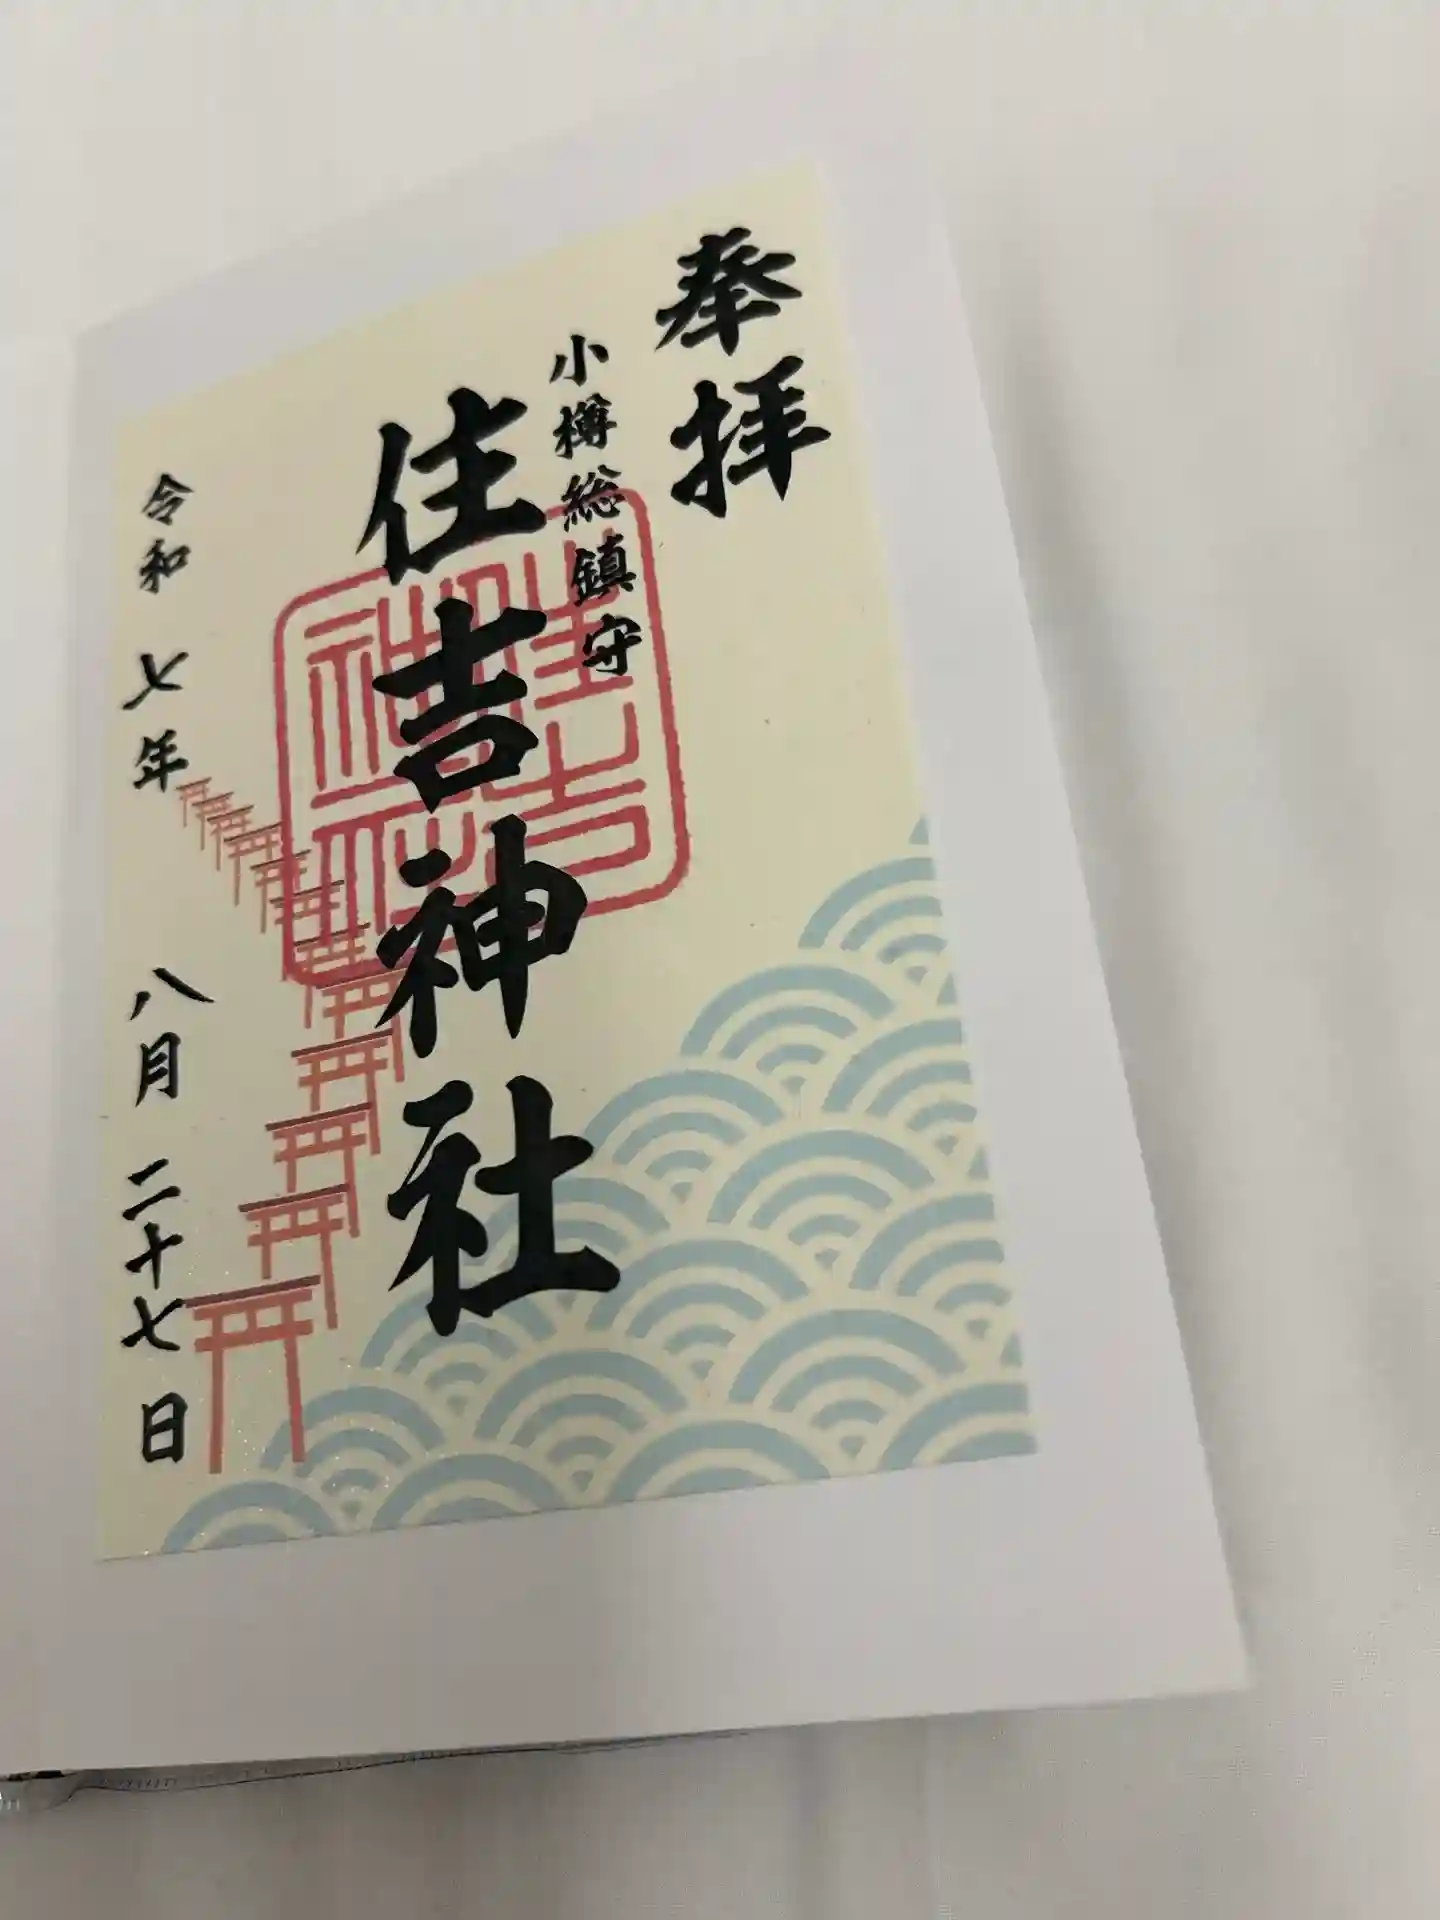 奉拝
小樽総鎮守
住吉神社
令和七年八月二十七日
住吉
神社